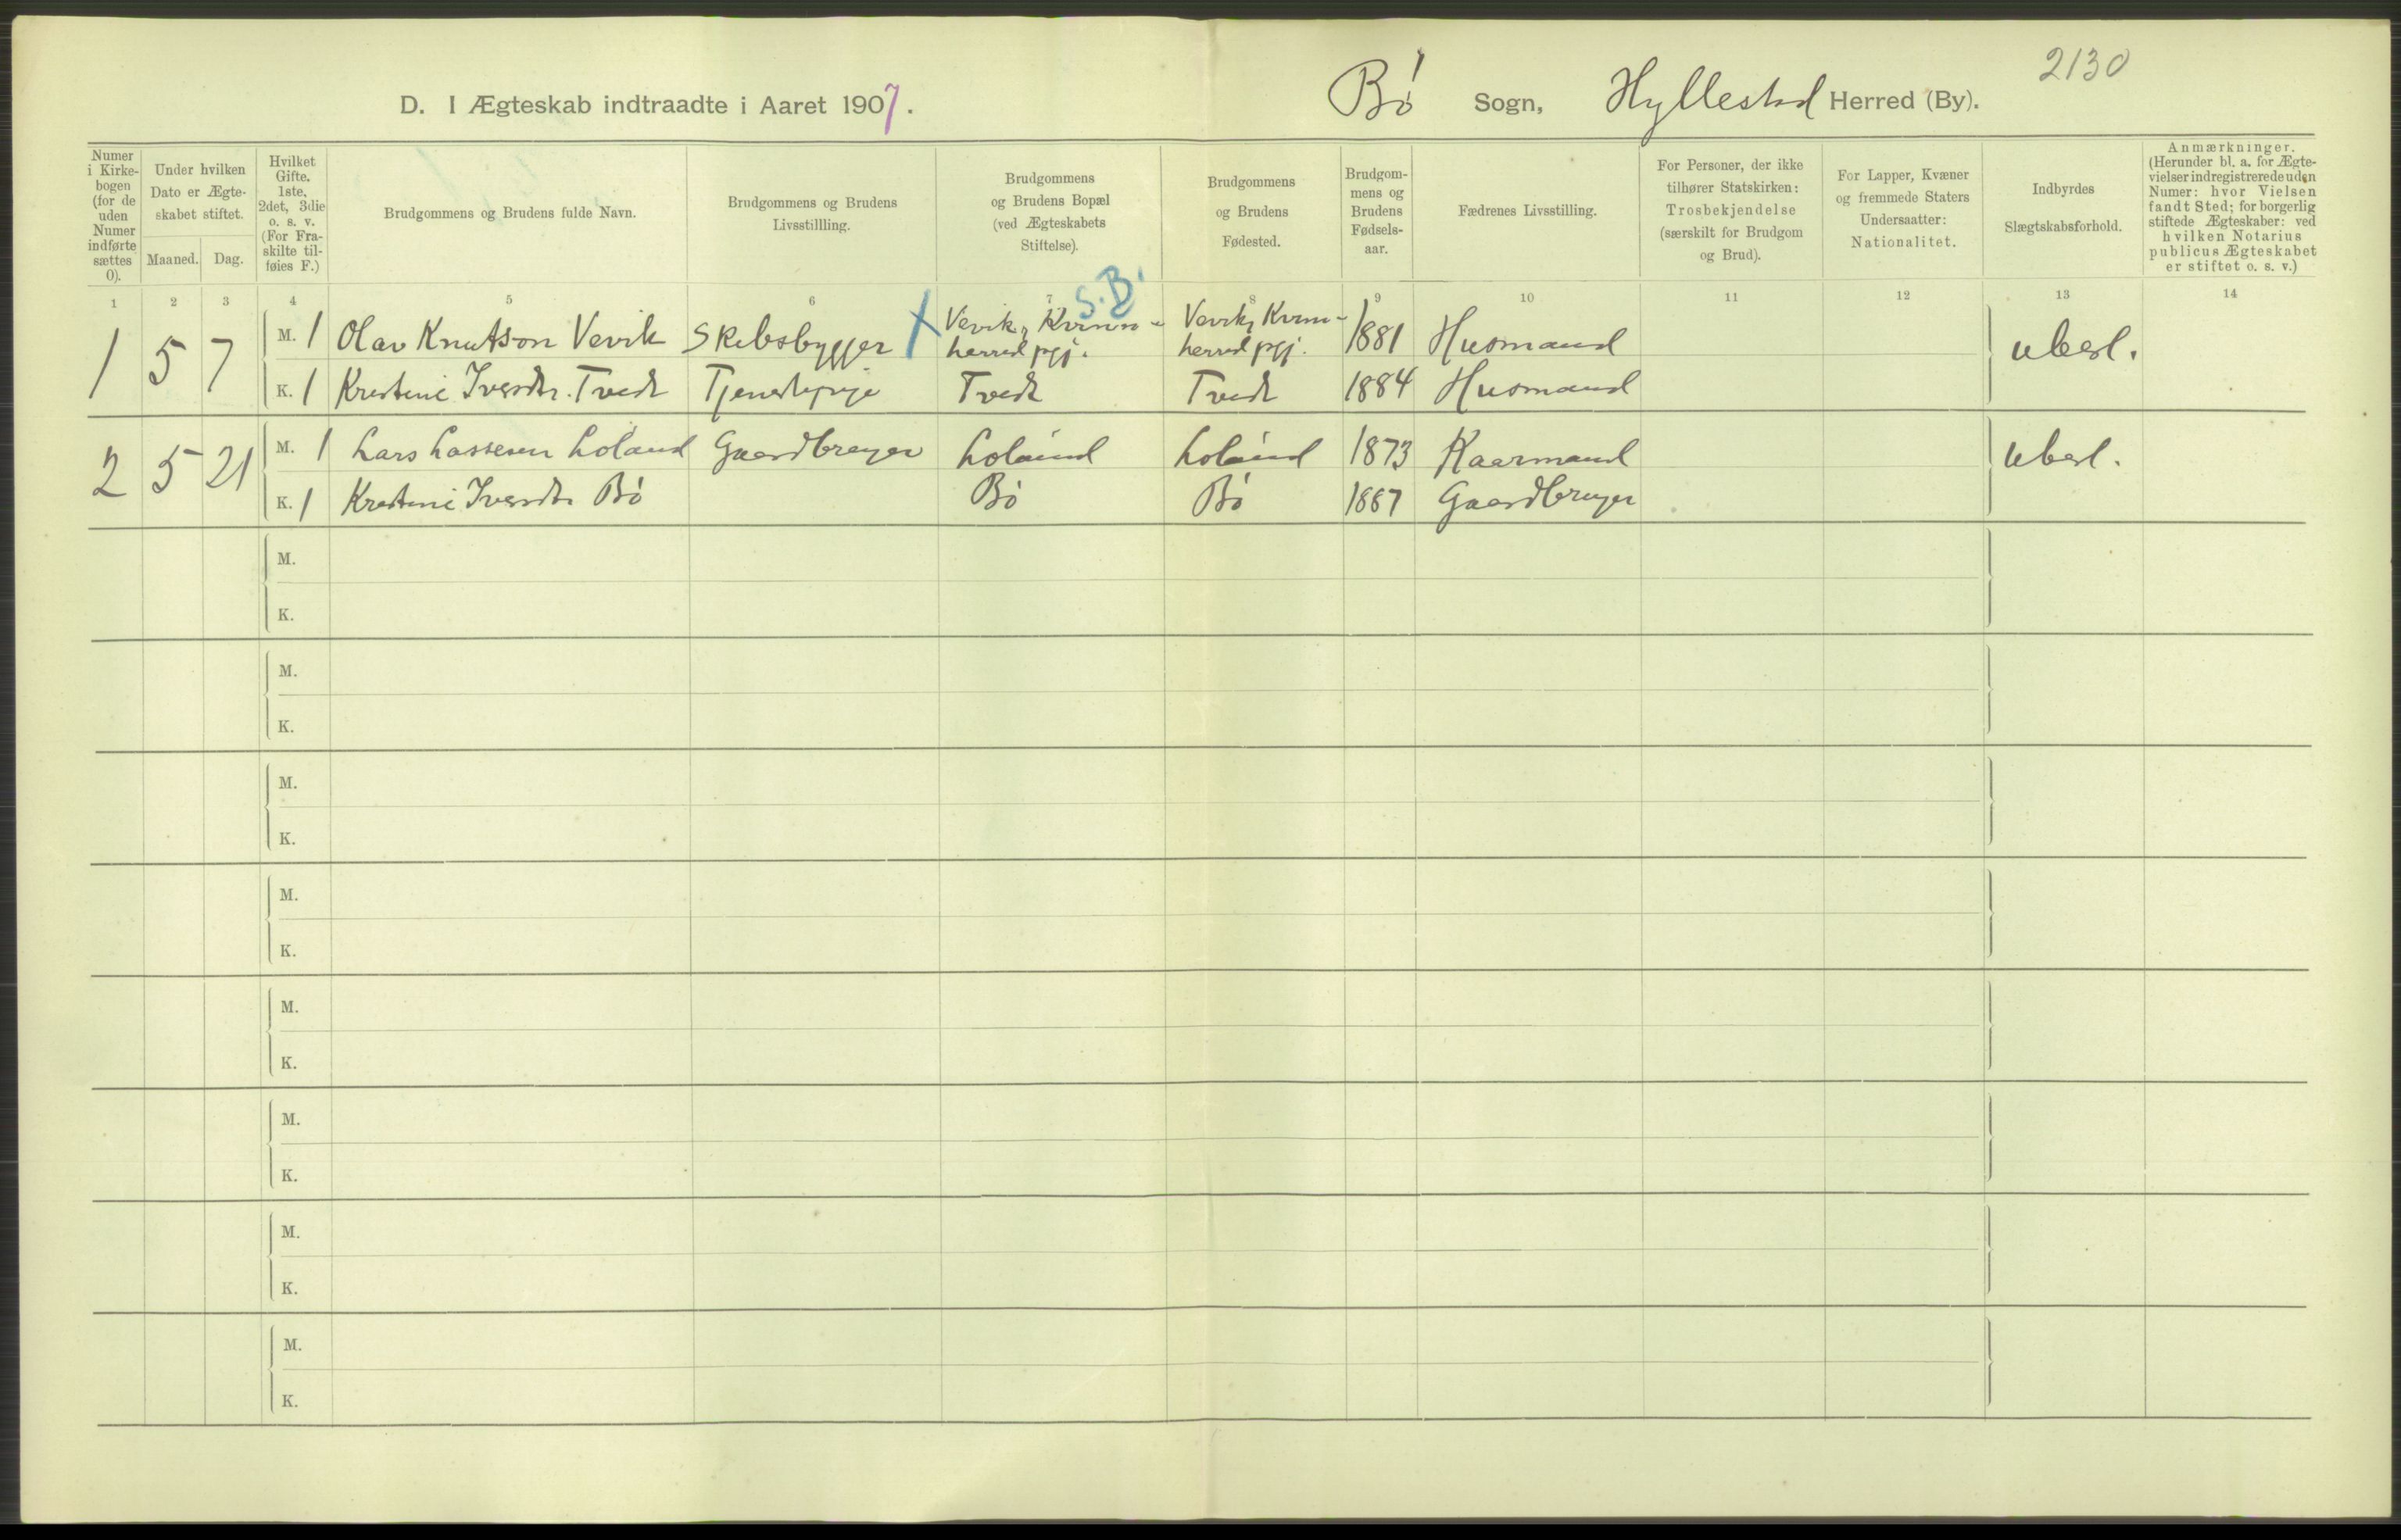 2130
D. I Ægteskab indtraadte i Aaret 1907. Bø Sogn, Hyllestad Herred (By).
Numer i Kirkebogen (for de uden Numer indførte sættes 0).
Under hvilken Dato er Ægteskabet stiftet.
Maaned. Dag.
Hvilket Gifte. 1ste, 2det, 3die o. s. v. (For Fraskilte tilføies F.)
Brudgommens og Brudens fulde Navn.
Brudgommens og Brudens Livsstillling.
Brudgommens og Brudens Bopæl (ved Ægteskabets Stiftelse).
Brudgommens og Brudens Fødested.
Brudgommens og Brudens Fødselsaar.
Fædrenes Livsstilling.
For Personer, der ikke tilhører Statskirken: Trosbekjendelse (særskilt for Brudgom og Brud).
For Lapper, Kvæner og fremmede Staters Undersaatter: Nationalitet.
Indbyrdes Slægtskabsforhold.
Anmærkninger. (Herunder bl. a. for Ægtevielser indregistrerede uden Numer: hvor Vielsen fandt Sted; for borgerlig stiftede Ægteskaber: ved hvilken Notarius publicus Ægteskabet er stiftet o. s. v.)
1 2 3 4 5 6 7 8 9 10 11 12 13 14
S.B.
1 5 7 M. 1 Olav Knutson Vevik Skibsbygger X Vevik, Kvinnherred pgj. Vevik, Kvinnherred pgj. 1881 Husmand ubesl.
K. 1 Kristine Iversdtr. Tvedt Tjenestepige Tvedt Tvedt 1884 Husmand
2 5 21 M. 1 Lars Lassesen Løland Gaardbruger Løland Løland 1873 Kaarmand ubesl.
K. 1 Kristine Iversdtr Bø Bø Bø 1887 Gaardbruger
M.
K.
M.
K.
M.
K.
M.
K.
M.
K.
M.
K.
M.
K.
M.
K.